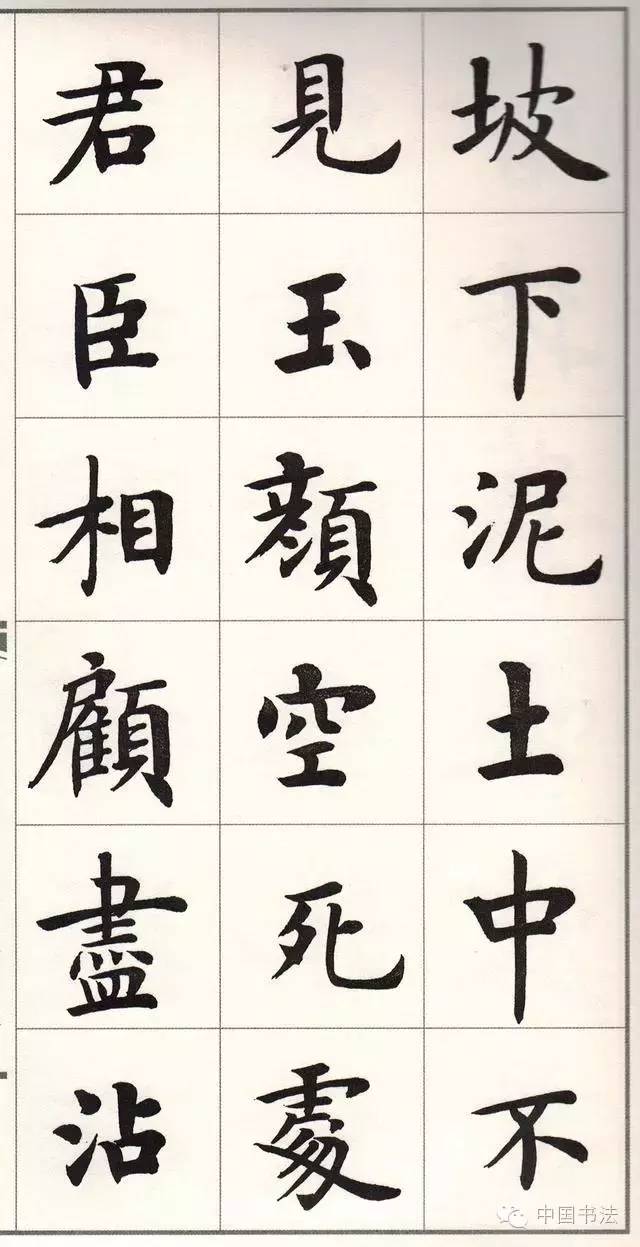 坡下泥土中不
見玉顔空死處
君臣相顧盡沾
中国书法